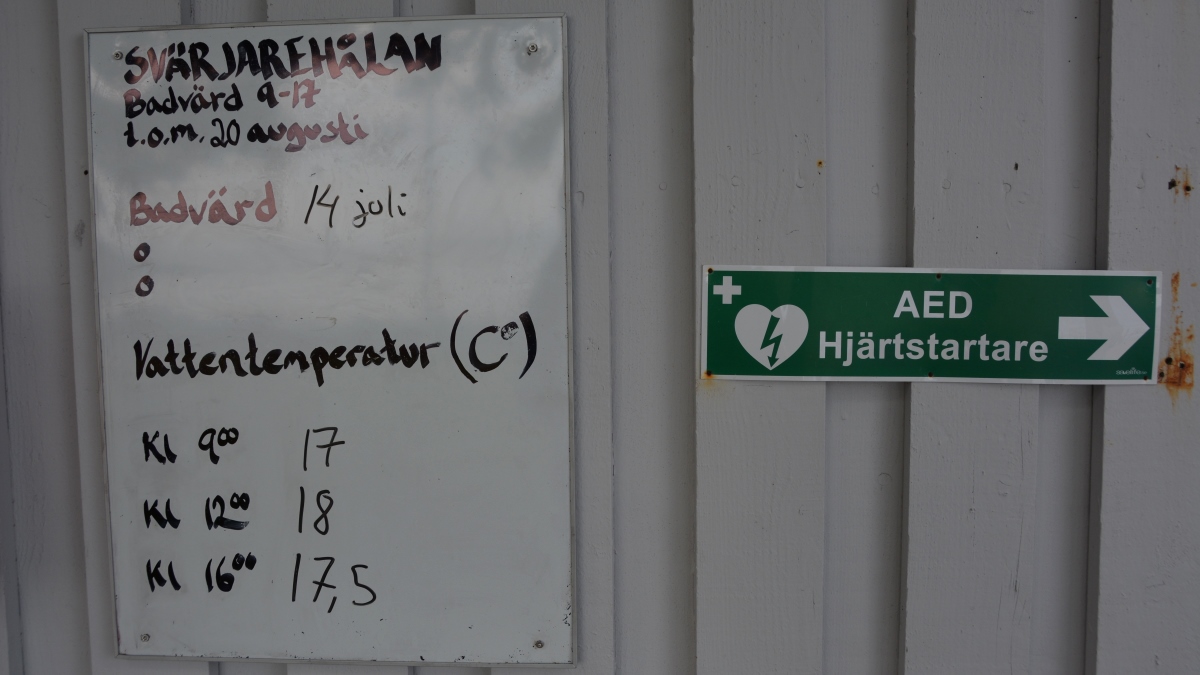 SVÄRJAREHÅLAN
Badvärd 9-17
t.o.m. 20 augusti
Badvärd 14 juli
Vattentemperatur (C°)
Kl 9⁰⁰ 17
Kl 12⁰⁰ 18
Kl 16⁰⁰ 17,5
AED
Hjärtstartare